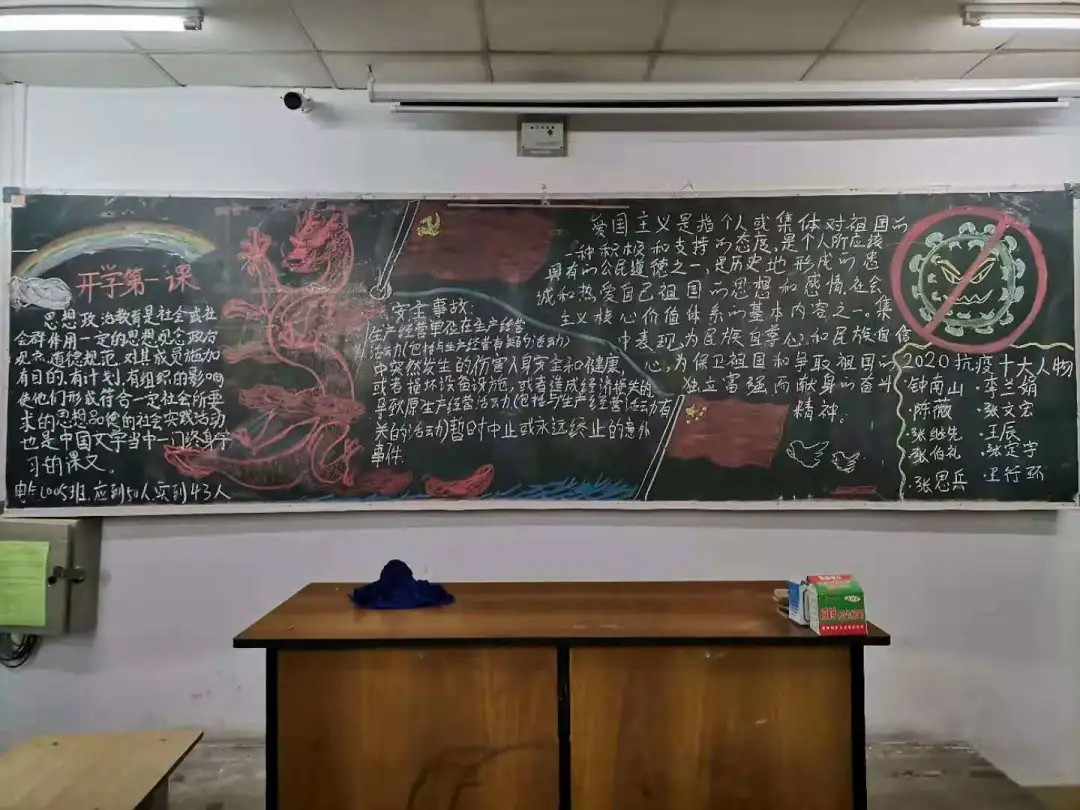 开学第一课
思想政治教育是社会或社
会群体用一定的思想观念政治
观点,道德规范,对其成员施加
有目的,有计划,有组织的影响
使他们形成符合一定社会所要
求的思想品德的社会实践活动
也是中国文字当中一门终身学
习的课文。
应到50人实到43人
安全事故:
生产经营单位在生产经营
活动(包括与生产经营有关的活动)
中突然发生的伤害人身安全和健康,
或者损坏设备设施,或者造成经济损失的
导致原生产经营活动(包括与生产经营活动有
关的活动)暂时中止或永远终止的意外
事件.
爱国主义是指个人或集体对祖国的
一种积极和支持的态度,是个人所应该
具有的公民道德之一,是历史地形成的忠
诚和热爱自己祖国的思想和感情,社会
主义核心价值体系的基本内容之一.集
中表现为民族自尊心和民族自信
心,为保卫祖国和争取祖国的
独立富强而献身的奋斗
精神。
2020抗疫十大人物
·钟南山 ·李兰娟
·陈薇 ·张文宏
·张继先 ·王辰
·张伯礼 ·张定宇
·张思兵 ·王行环